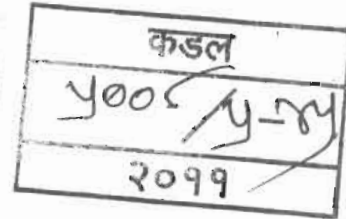 कडल
५००८/५-२५
२०११